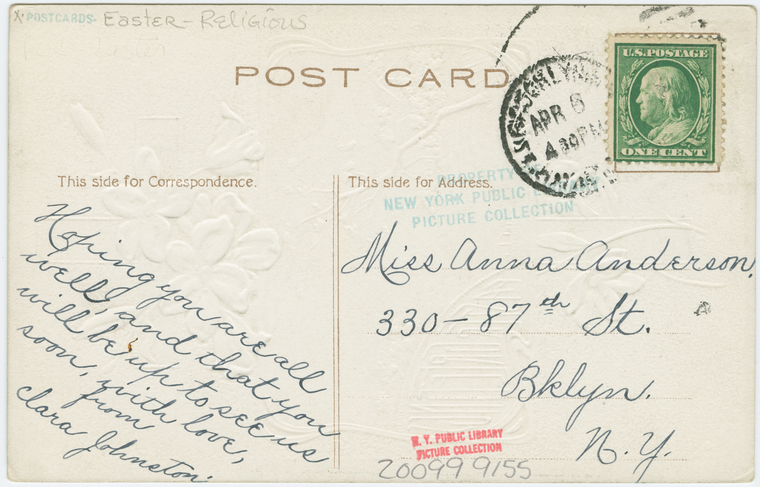 X. POSTCARDS- Easter - Religious
POST CARD
BKLYN
APR 6
4 30 PM
U.S. POSTAGE
ONE CENT
This side for Correspondence.
This side for Address.
PROPERTY
NEW YORK PUBLIC
PICTURE COLLECTION
Hoping you are all
well, and that you
will be up to see us
soon, with love,
from
Clara Johnston.
Miss Anna Anderson,
330-87th St.
Bklyn.
N.Y.
N. Y. PUBLIC LIBRARY
PICTURE COLLECTION
200999155